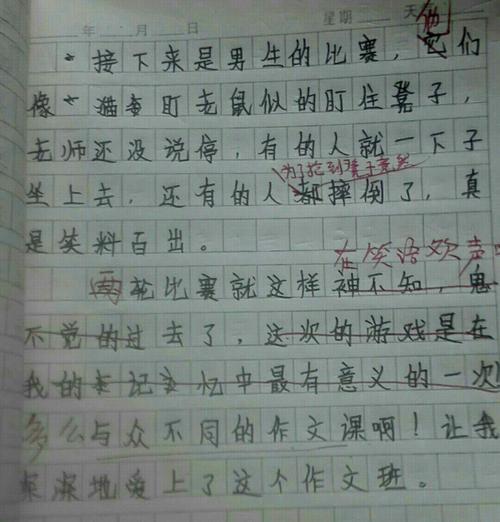 年 月 日 星期 天
他
接下来是男生的比赛，它们
像 猫 盯老鼠似的盯住凳子，
老师还没说停，有的人就一下子
为了抢到凳子竟然
坐上去，还有的人都摔倒了，真
是笑料百出。
在笑语欢声
两轮比赛就这样神不知，鬼
不觉的过去了，这次的游戏是在
我的 记 忆中最有意义的一次
多么与众不同的作文课啊！让我
深深地爱上了这个作文班。